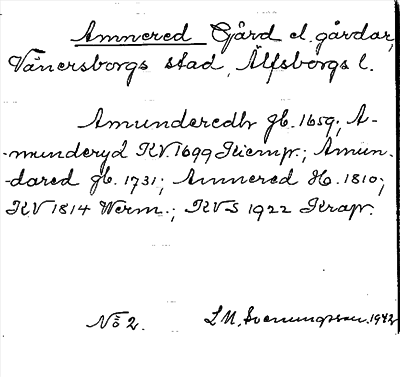 Amnered Gård el. gårdar,
Vänersborgs stad, Älfsborgs l.
Amunderedh gb. 1659; A-
-munderyd KV. 1699 Kiemp.; Amun-
-dared gb. 1731; Amnered H. 1810;
KV 1814 Werm.; KVS 1922 Krap.
No 2. L.M. Svenungsson. 1942